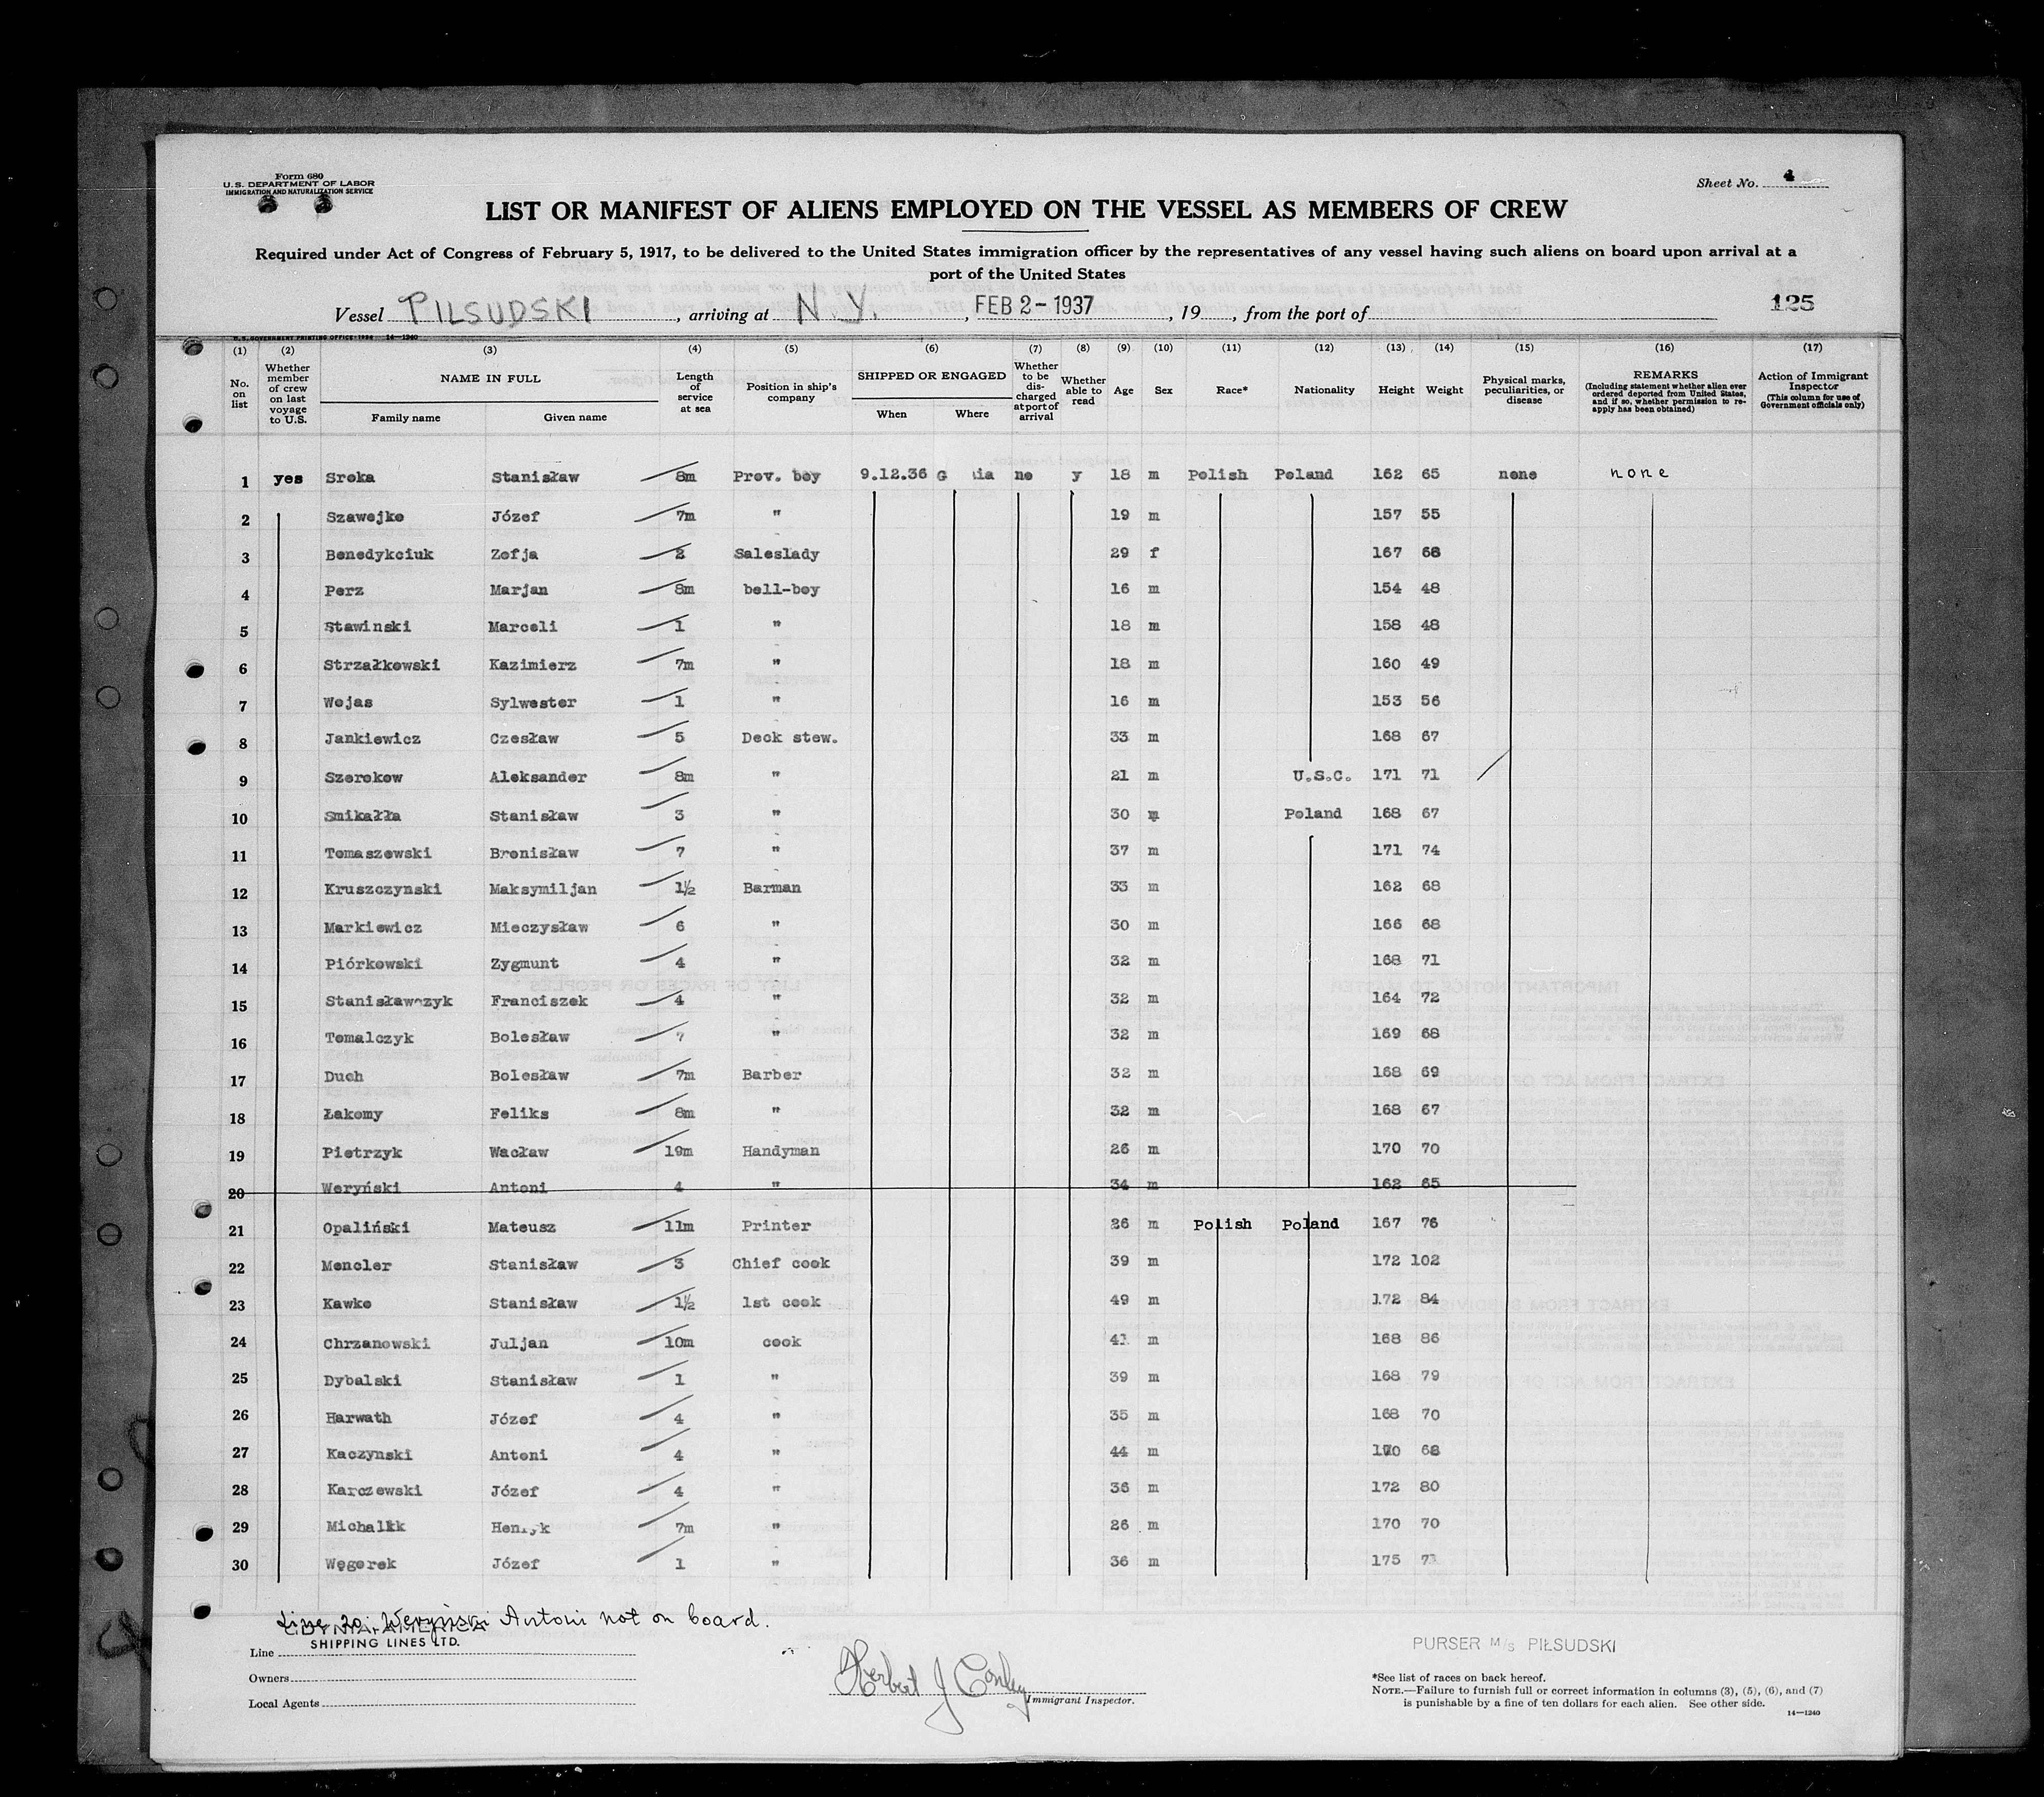 Form 680
U.S. DEPARTMENT OF LABOR
IMMIGRATION AND NATURALIZATION SERVICE
Sheet No. 4
LIST OR MANIFEST OF ALIENS EMPLOYED ON THE VESSEL AS MEMBERS OF CREW
Required under Act of Congress of February 5, 1917, to be delivered to the United States immigration officer by the representatives of any vessel having such aliens on board upon arrival at a
port of the United States
Vessel PILSUDSKI, arriving at N.Y., FEB 2 - 1937, 19, from the port of 125
U.S. GOVERNMENT PRINTING OFFICE: 1936 14—1240
(1) (2) (3) (4) (5) (6) (7) (8) (9) (10) (11) (12) (13) (14) (15) (16) (17)
No. on list
Whether member of crew on last voyage to U.S.
NAME IN FULL
Family name Given name
Length of service at sea
Position in ship's company
SHIPPED OR ENGAGED
When Where
Whether to be discharged at port of arrival
Whether able to read
Age Sex Race* Nationality Height Weight
Physical marks, peculiarities, or disease
REMARKS
(Including statement whether alien ever ordered deported from United States, and if so, whether permission to reapply has been obtained)
Action of Immigrant Inspector
(This column for use of Government officials only)
1 yes Sroka Stanisław 8m Prov. boy 9.12.36 G ia no y 18 m Polish Poland 162 65 none none
2 Szawejko Józef 7m " 19 m 157 55
3 Benedykciuk Zofja 2 Saleslady 29 f 167 68
4 Perz Marjan 8m bell-boy 16 m 154 48
5 Stawinski Marceli 1 " 18 m 158 48
6 Strzałkowski Kazimierz 7m " 18 m 160 49
7 Wojas Sylwester 1 " 16 m 153 56
8 Jankiewicz Czesław 5 Deck stew. 33 m 168 67
9 Szerokow Aleksander 8m " 21 m U.S.C. 171 71
10 Smikałła Stanisław 3 " 30 m Poland 168 67
11 Tomaszewski Bronisław 7 " 37 m 171 74
12 Kruszczynski Maksymiljan 1½ Barman 33 m 162 68
13 Markiewicz Mieczysław 6 " 30 m 166 68
14 Piórkowski Zygmunt 4 " 32 m 168 71
15 Stanisławczyk Franciszek 4 " 32 m 164 72
16 Tomalczyk Bolesław 7 " 32 m 169 68
17 Duch Bolesław 7m Barber 32 m 168 69
18 Łakomy Feliks 8m " 32 m 168 67
19 Pietrzyk Wacław 19m Handyman 26 m 170 70
20 Weryński Antoni 4 " 34 m 162 65
21 Opaliński Mateusz 11m Printer 26 m Polish Poland 167 76
22 Mencler Stanisław 3 Chief cook 39 m 172 102
23 Kawko Stanisław 1½ 1st cook 49 m 172 84
24 Chrzanowski Juljan 10m cook 41 m 168 86
25 Dybalski Stanisław 1 " 39 m 168 79
26 Harwath Józef 4 " 35 m 168 70
27 Kaczynski Antoni 4 " 44 m 170 68
28 Karczewski Józef 4 " 36 m 172 80
29 Michalik Henryk 7m " 26 m 170 70
30 Węgorek Józef 1 " 36 m 175
Line 20: Weryński Antoni not on board.
GDYNIA-AMERICA
SHIPPING LINES LTD.
Line
Owners
Local Agents
Herbert J Conley
Immigrant Inspector.
PURSER M/s PIŁSUDSKI
*See list of races on back hereof.
NOTE.—Failure to furnish full or correct information in columns (3), (5), (6), and (7)
is punishable by a fine of ten dollars for each alien. See other side.
14—1240